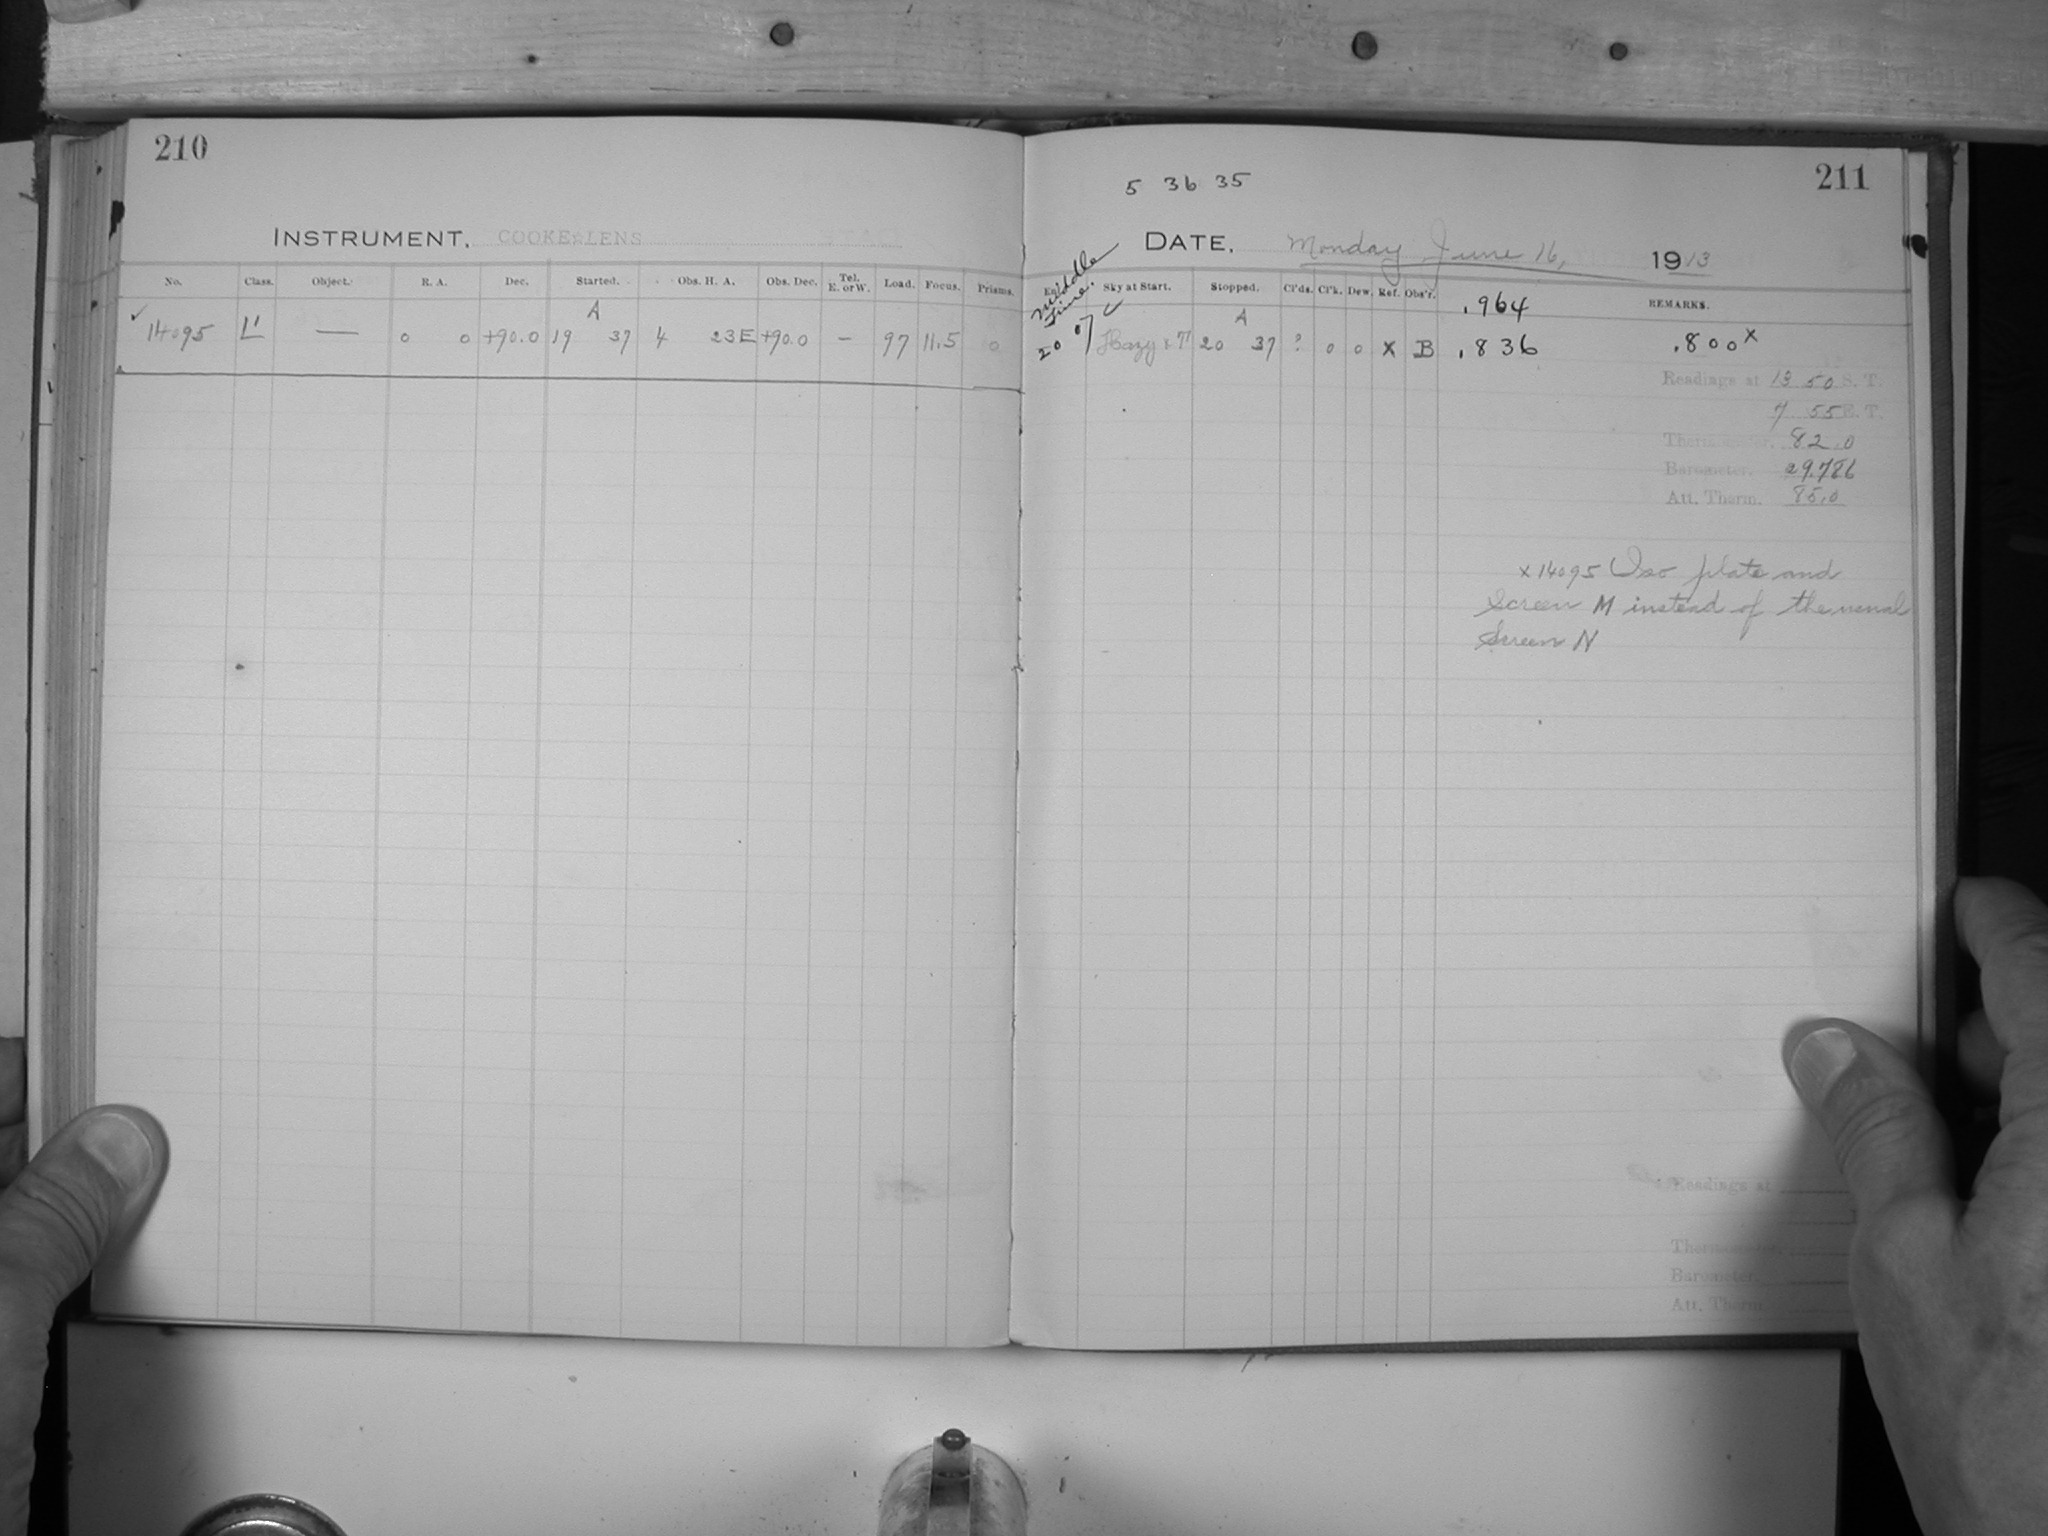 210
INSTRUMENT. COOKE LENS
No. Class. Object. R. A. Dec. Started. Obs. H. A. Obs. Dec. Tel. E. or W. Load. Focus. Prisms.
A
✓ 14095 L' — 0 0 +90.0 19 37 4 23E +90.0 – 97 11.5 0
211
5 36 35
DATE. Monday June 16, 1913
Middle Time.
Sky at Start. Stopped. Cl'ds. Cl'k. Dew. Ref. Obs'r. .964 REMARKS.
A
20 07 Hazy & T 20 37 ? 0 0 X B .836 .800 x
Readings at 13 50 S. T.
7 55 E. T.
Thermometer. 82.0
Barometer. 29.786
Att. Therm. 85.0
x 14095 Iso plate and
Screen M instead of the usual
Screen N
Readings at
Thermometer.
Barometer.
Att. Therm.